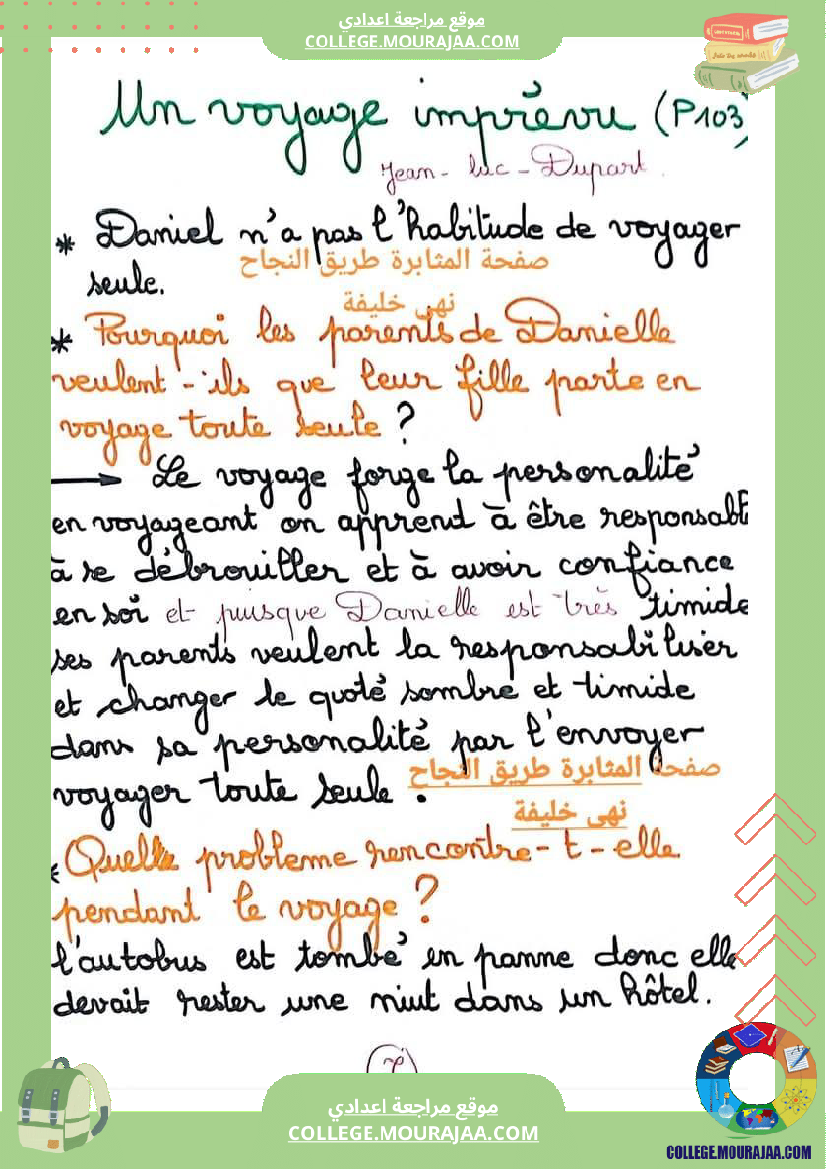 موقع مراجعة اعدادي
COLLEGE.MOURAJAA.COM
Un voyage imprévu (P103)
Jean-luc-Dupart.
* Daniel n'a pas l'habitude de voyager
صفحة المثابرة طريق النجاح
seule.
نهى خليفة
* Pourquoi les parents de Danielle
veulent-ils que leur fille parte en
voyage toute seule ?
→ Le voyage forge la personalité
en voyageant on apprend à être responsabl
à se débrouiller et à avoir confiance
en soi et puisque Danielle est très timide
ses parents veulent la responsabiliser
et changer le quoté sombre et timide
dans sa personalité par l'envoyer
صفحة المثابرة طريق النجاح
voyager toute seule.
نهى خليفة
* Quelle probleme rencontre-t-elle
pendant le voyage ?
l'autobus est tombé en panne donc elle
devait rester une niut dans un hôtel.
موقع مراجعة اعدادي
COLLEGE.MOURAJAA.COM
COLLEGE.MOURAJAA.COM